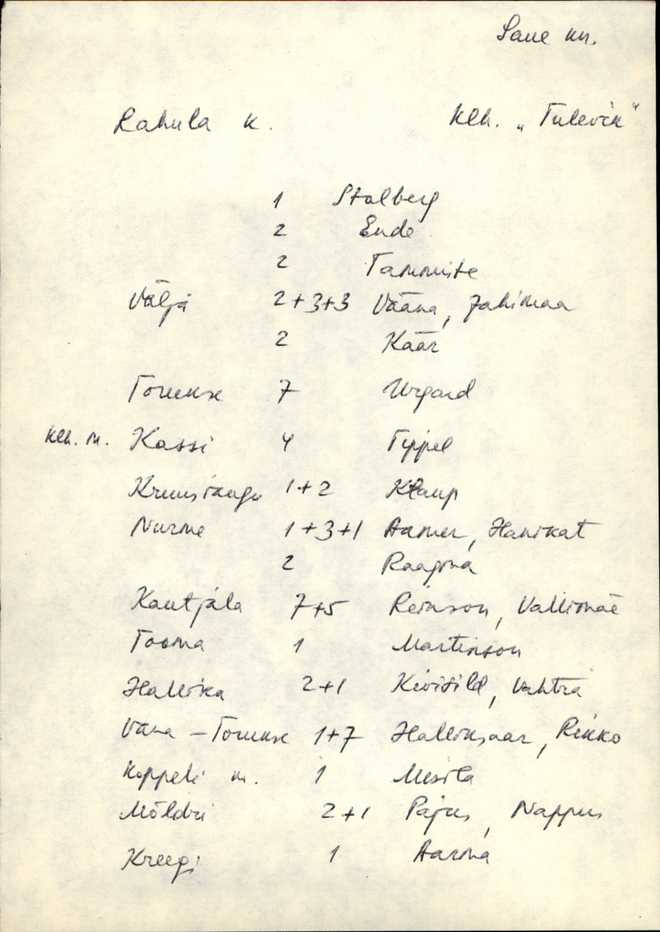 Saue kn.
Rahula k. Klh. „Tulevik"
1 Stalberg
2 Ende
2 Tammiste
Välja 2+3+3 Vääna, Jahimaa
2 Käär
Toruse 7 Urgard
Klh. m. Kassi 4 Tippel
Kruusiaugu 1+2 Klaup
Nurme 1+3+1 Aamer, Hanikat
2 Raagma
Kautjala 7+5 Reinson, Vallimäe
Tooma 1 Martinson
Hallika 2+1 Kivisild, Vahtra
Vana-Toruse 1+7 Halliksaar, Rikko
Koppeli m. 1 Mesila
Möldri 2+1 Pajus, Nappus
Kreegi 1 Aarma